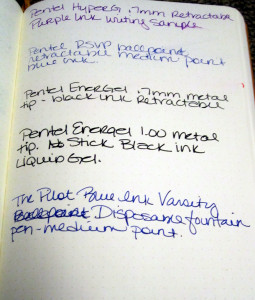 Pentel HyperG .7mm Retractable
Purple Ink Writing Sample
Pentel RSVP ballpoint
retractable medium point
blue ink
Pentel EnerGel .7mm metal
tip - black ink Retractable
Pentel Energel 1.00 metal
tip. Stick Black ink
Liquid Gel.
The Pilot Blue Ink Varsity
Ballpoint Disposable fountain
pen - medium point.